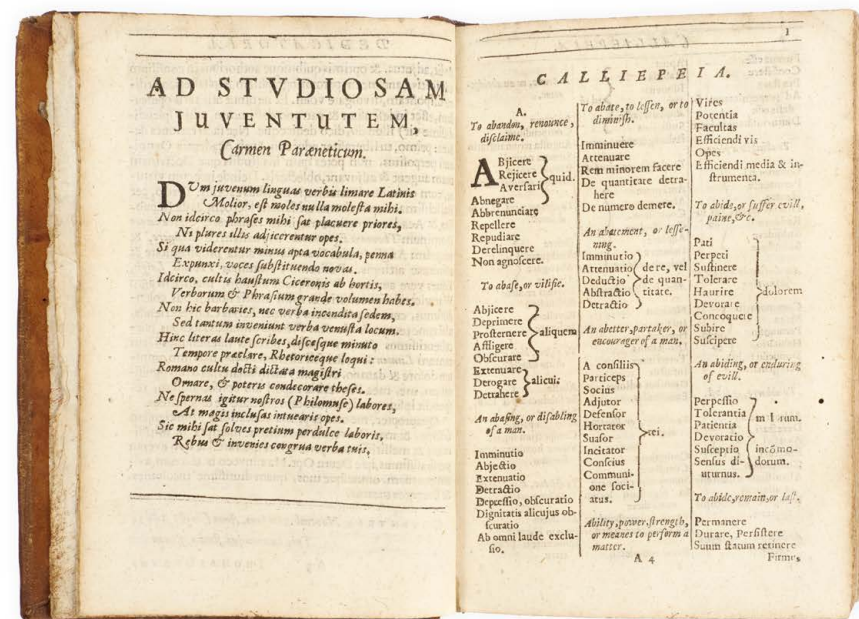 AD STVDIOSAM
JUVENTUTEM,
Carmen Paræneticum.
DUm juvenum linguas verbis limare Latinis
Molior, est moles nulla molesta mihi.
Non idcirco phrases mihi sat placuere priores,
Ni plures illis adjicerentur opes.
Si qua viderentur minus apta vocabula, penna
Expunxi, voces substituendo novas.
Idcirco, cultis haustum Ciceronis ab hortis,
Verborum & Phrasium grande volumen habes.
Non hic barbaries, nec verba incondita sedem,
Sed tantum inveniunt verba venusta locum.
Hinc literas laute scribes, discesque minuto
Tempore præclare, Rhetoriceque loqui:
Romano cultu docti dictata magistri
Ornare, & poteris condecorare theses.
Ne spernas igitur nostros (Philomuse) labores,
At magis inclusas intuearis opes.
Sic mihi sat solves pretium perdulce laboris,
Rebus & invenies congrua verba tuis,
1
CALLIEPEIA.
A.
To abandon, renounce,
disclaime.
ABjicere
Rejicere
Aversari
quid.
Abnegare
Abbrenunciare
Repellere
Repudiare
Derelinquere
Non agnoscere.
To abase, or vilifie.
Abjicere
Deprimere
Prosternere
Affligere
Obscurare
aliquem
Extenuare
Derogare
Detrahere
alicui.
An abasing, or disabling
of a man.
Imminutio
Abjectio
Extenuatio
Detractio
Depressio, obscuratio
Dignitatis alicujus ob-
scuratio
Ab omni laude exclu-
sio.
To abate, to lessen, or to
diminish.
Imminuere
Attenuare
Rem minorem facere
De quantitate detra-
here
De numero demere.
An abatement, or lesse-
ning.
Imminutio
Attenuatio
Deductio
Abstractio
Detractio
de re, vel
de quan-
titate.
An abetter, partaker, or
encourager of a man.
A consiliis
Particeps
Socius
Adjutor
Defensor
Hortator
Suasor
Incitator
Conscius
Communi-
one soci-
atus.
rei.
Ability, power, strength,
or means to perform a
matter.
A 4
Vires
Potentia
Facultas
Efficiendi vis
Opes
Efficiendi media & in-
strumenta.
To abide, or suffer evill,
paine, &c.
Pati
Perpeti
Sustinere
Tolerare
Haurire
Devorare
Concoquere
Subire
Suscipere
dolorem
An abiding, or enduring
of evill.
Perpessio
Tolerantia
Patientia
Devoratio
Susceptio
Sensus di-
uturnus.
incōmo-
dorum.
To abide, remain, or last.
Permanere
Durare, Persistere
Suum statum retinere
Firme,